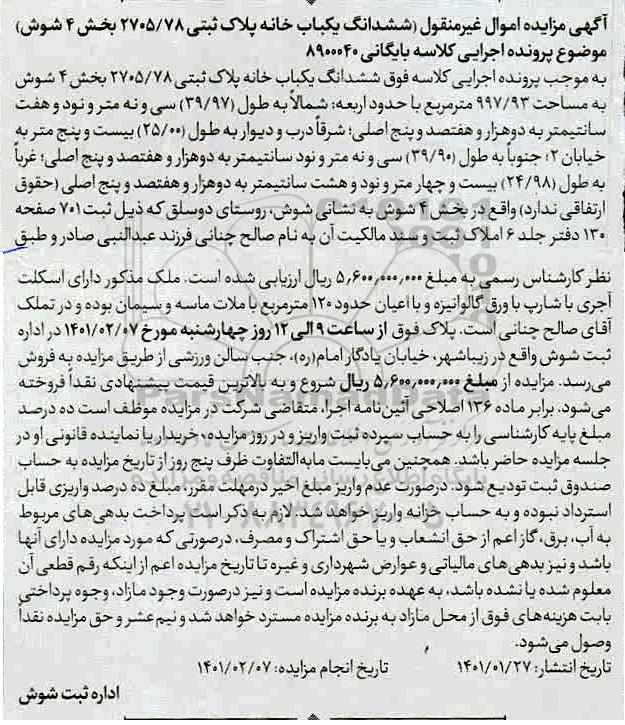 آگهی مزایده اموال غیرمنقول (ششدانگ یکباب خانه پلاک ثبتی ۲۷۰۵/۷۸ بخش ۴ شوش)
موضوع پرونده اجرایی کلاسه بایگانی ۸۹۰۰۰۴۰
به موجب پرونده اجرایی کلاسه فوق ششدانگ یکباب خانه پلاک ثبتی ۲۷۰۵/۷۸ بخش ۴ شوش
به مساحت ۹۹۷/۹۳ مترمربع با حدود اربعه: شمالاً به طول (۳۹/۹۷) سی و نه متر و نود و هفت
سانتیمتر به دوهزار و هفتصد و پنج اصلی؛ شرقاً درب و دیوار به طول (۲۵/۰۰) بیست و پنج متر به
خیابان ۲؛ جنوباً به طول (۳۹/۹۰) سی و نه متر و نود سانتیمتر به دوهزار و هفتصد و پنج اصلی؛ غرباً
به طول (۲۴/۹۸) بیست و چهار متر و نود و هشت سانتیمتر به دوهزار و هفتصد و پنج اصلی (حقوق
ارتفاقی ندارد) واقع در بخش ۴ شوش به نشانی شوش، روستای دوسلق که ذیل ثبت ۷۰۱ صفحه
۱۳۰ دفتر جلد ۶ املاک ثبت و سند مالکیت آن به نام صالح چنانی فرزند عبدالنبی صادر و طبق
نظر کارشناس رسمی به مبلغ ۵٫۶۰۰٫۰۰۰٫۰۰۰ ریال ارزیابی شده است. ملک مذکور دارای اسکلت
آجری با شارپ با ورق گالوانیزه و با اعیان حدود ۱۲۰ مترمربع با ملات ماسه و سیمان بوده و در تملک
آقای صالح چنانی است. پلاک فوق از ساعت ۹ الی ۱۲ روز چهارشنبه مورخ ۱۴۰۱/۰۲/۰۷ در اداره
ثبت شوش واقع در زیباشهر، خیابان یادگار امام(ره)، جنب سالن ورزشی از طریق مزایده به فروش
می‌رسد. مزایده از مبلغ ۵٫۶۰۰٫۰۰۰٫۰۰۰ ریال شروع و به بالاترین قیمت پیشنهادی نقداً فروخته
می‌شود. برابر ماده ۱۳۶ اصلاحی آئین‌نامه اجرا، متقاضی شرکت در مزایده موظف است ده درصد
مبلغ پایه کارشناسی را به حساب سپرده ثبت واریز و در روز مزایده، خریدار یا نماینده قانونی او در
جلسه مزایده حاضر باشد. همچنین می‌بایست مابه‌التفاوت ظرف پنج روز از تاریخ مزایده به حساب
صندوق ثبت تودیع شود. درصورت عدم واریز مبلغ اخیر درمهلت مقرر، مبلغ ده درصد واریزی قابل
استرداد نبوده و به حساب خزانه واریز خواهد شد. لازم به ذکر است پرداخت بدهی‌های مربوط
به آب، برق، گاز اعم از حق انشعاب و یا حق اشتراک و مصرف، درصورتی که مورد مزایده دارای آنها
باشد و نیز بدهی‌های مالیاتی و عوارض شهرداری و غیره تا تاریخ مزایده اعم از اینکه رقم قطعی آن
معلوم شده یا نشده باشد، به عهده برنده مزایده است و نیز درصورت وجود مازاد، وجوه پرداختی
بابت هزینه‌های فوق از محل مازاد به برنده مزایده مسترد خواهد شد و نیم‌عشر و حق مزایده نقداً
وصول می‌شود.
تاریخ انتشار: ۱۴۰۱/۰۱/۲۷ تاریخ انجام مزایده: ۱۴۰۱/۰۲/۰۷
اداره ثبت شوش